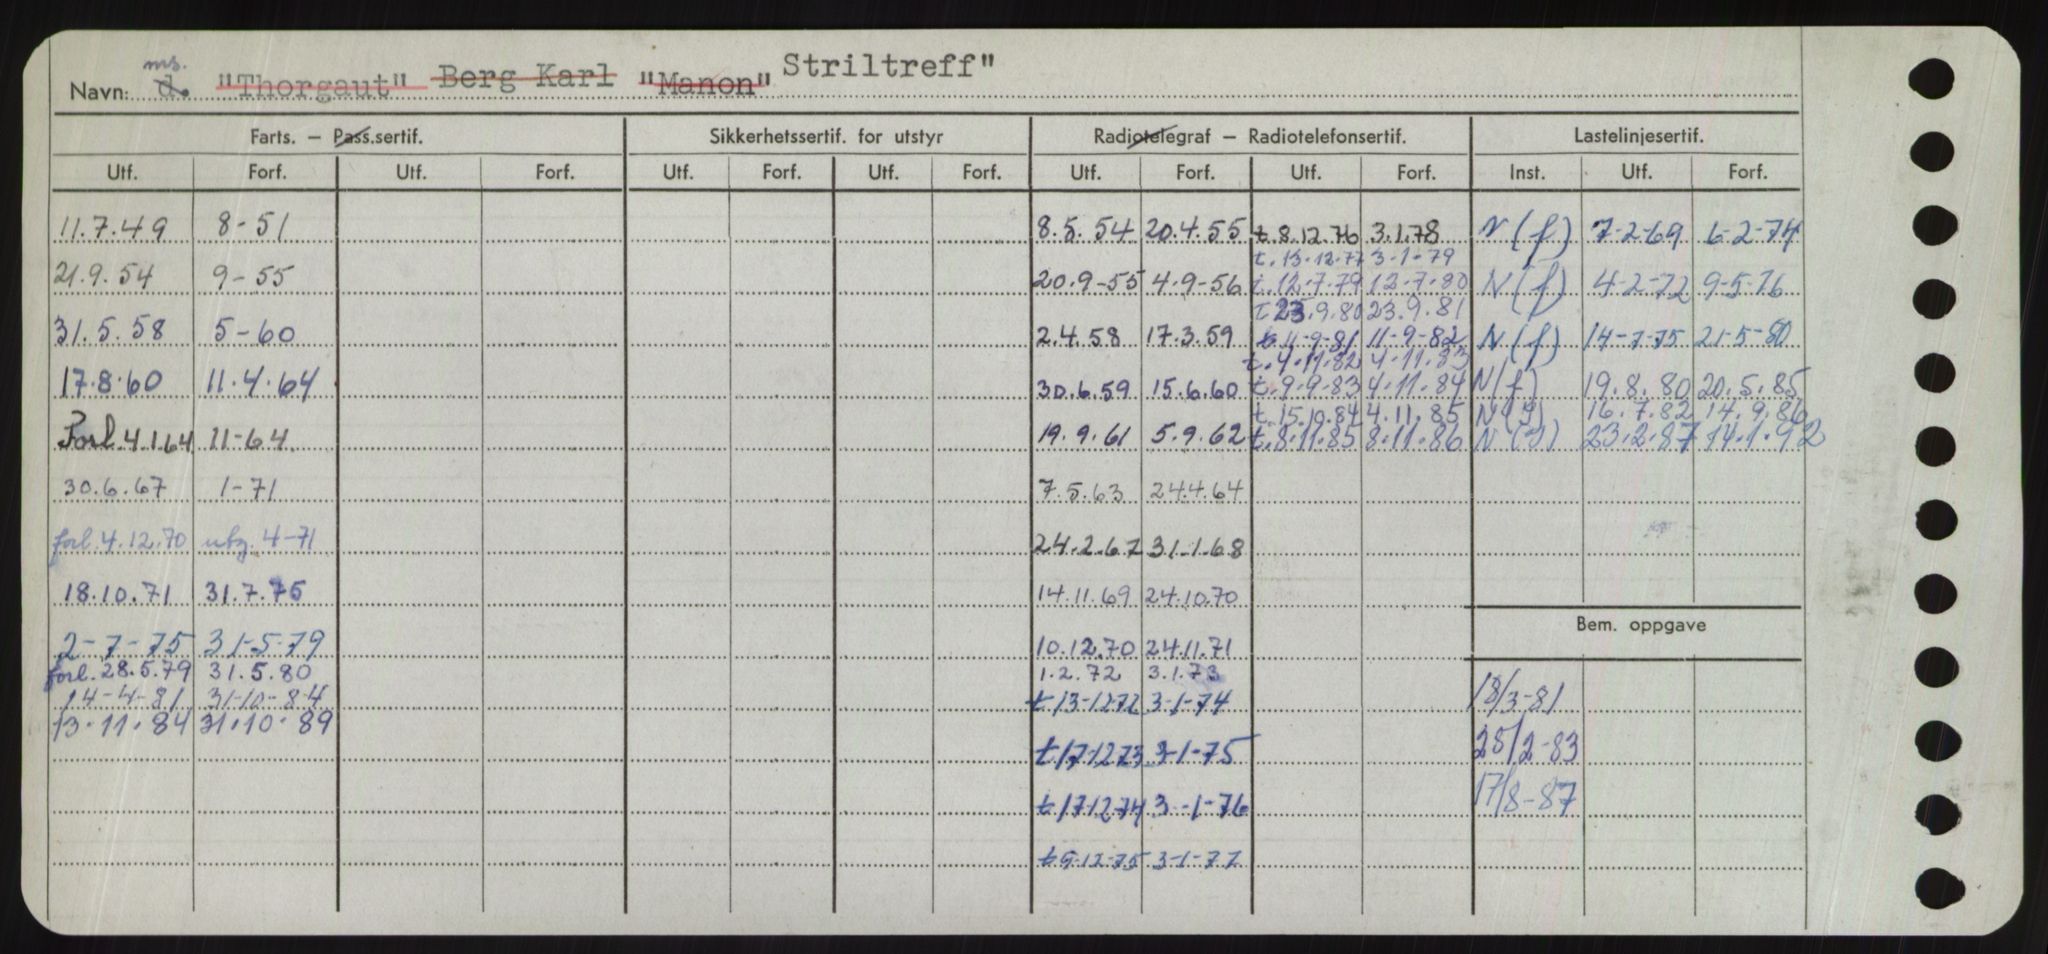 Navn: ms. d. "Thorgaut" Berg Karl "Manon" Striltreff"
Farts. — Pass.sertif. Sikkerhetssertif. for utstyr Radiotelegraf — Radiotelefonsertif. Lastelinjesertif.
Utf. Forf. Utf. Forf. Utf. Forf. Utf. Forf. Utf. Forf. Utf. Forf. Inst. Utf. Forf.
11.7.49 8-51 8.5.54 20.4.55 t.8.12.76 3.1.78 N(f) 7-2-69 6-2-74
t.13.12.77 3-1-79
21.9.54 9-55 20.9-55 4.9-56 t.12.7.79 12.7.80 N(f) 4-2-72 9-5-76
t.23.9.80 23.9.81
31.5.58 5-60 2.4.58 17.3.59 t.11-9-81 11-9-82 N(f) 14-7-75 21-5-80
t.4.11.82 4.11.83
17.8.60 11.4.64 30.6.59 15.6.60 t.9-9-83 4.11.84 N(f) 19.8.80 20.5.85
t.15.10.84 4.11.85 16.7.82 14.9.86
Forl.4.1.64 11-64 19.9.61 5.9.62 t.8.11.85 8.11.86 23.2.87 14.1.92
30.6.67 1-71 7.5.63 24.4.64
forl.4.12.70 utg. 4-71 24.2.67 31.1.68
18.10.71 31.7.75 14.11.69 24.10.70
Bem. oppgave
2-7-75 31-5-79 10.12.70 24.11.71
forl.28.5.79 31.5.80 1.2.72 3.1.73
14-4-81 31-10-84 t13-12-72 3-1-74 18/3-81
13.11.84 31.10.89
t17-12-73 3-1-75 28/2-83
t17-12-74 3-1-76 17/8-87
t9-12-75 3-1-77